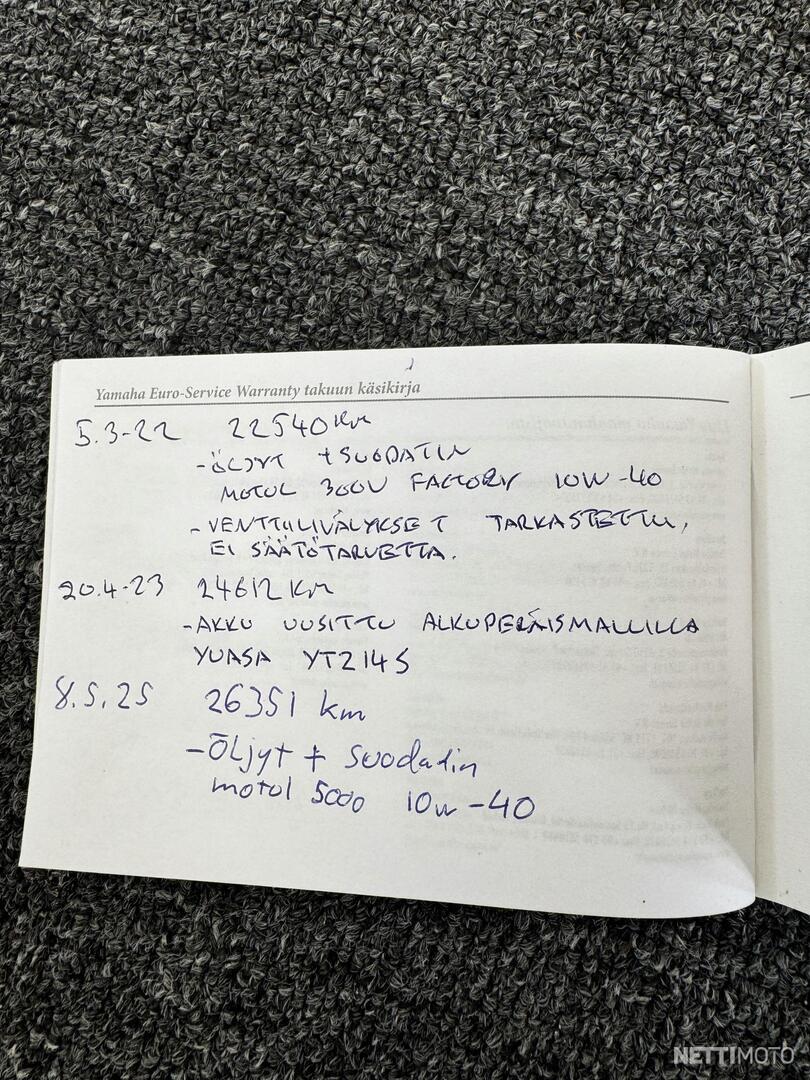 Yamaha Euro-Service Warranty takuun käsikirja
5.3-22 22540 km
-ÖLJYT + SUODATIN
MOTUL 300V FACTORY 10W-40
-VENTTIILIVÄLYKSET TARKASTETTU,
EI SÄÄTÖTARVETTA.
20.4-23 24612 KM
-AKKU UUSITTU ALKUPERÄISMALLILLA
YUASA YTZ14S
8.5.25 26351 km
-Öljyt + suodatin
motul 5000 10w-40
NETTIMOTO